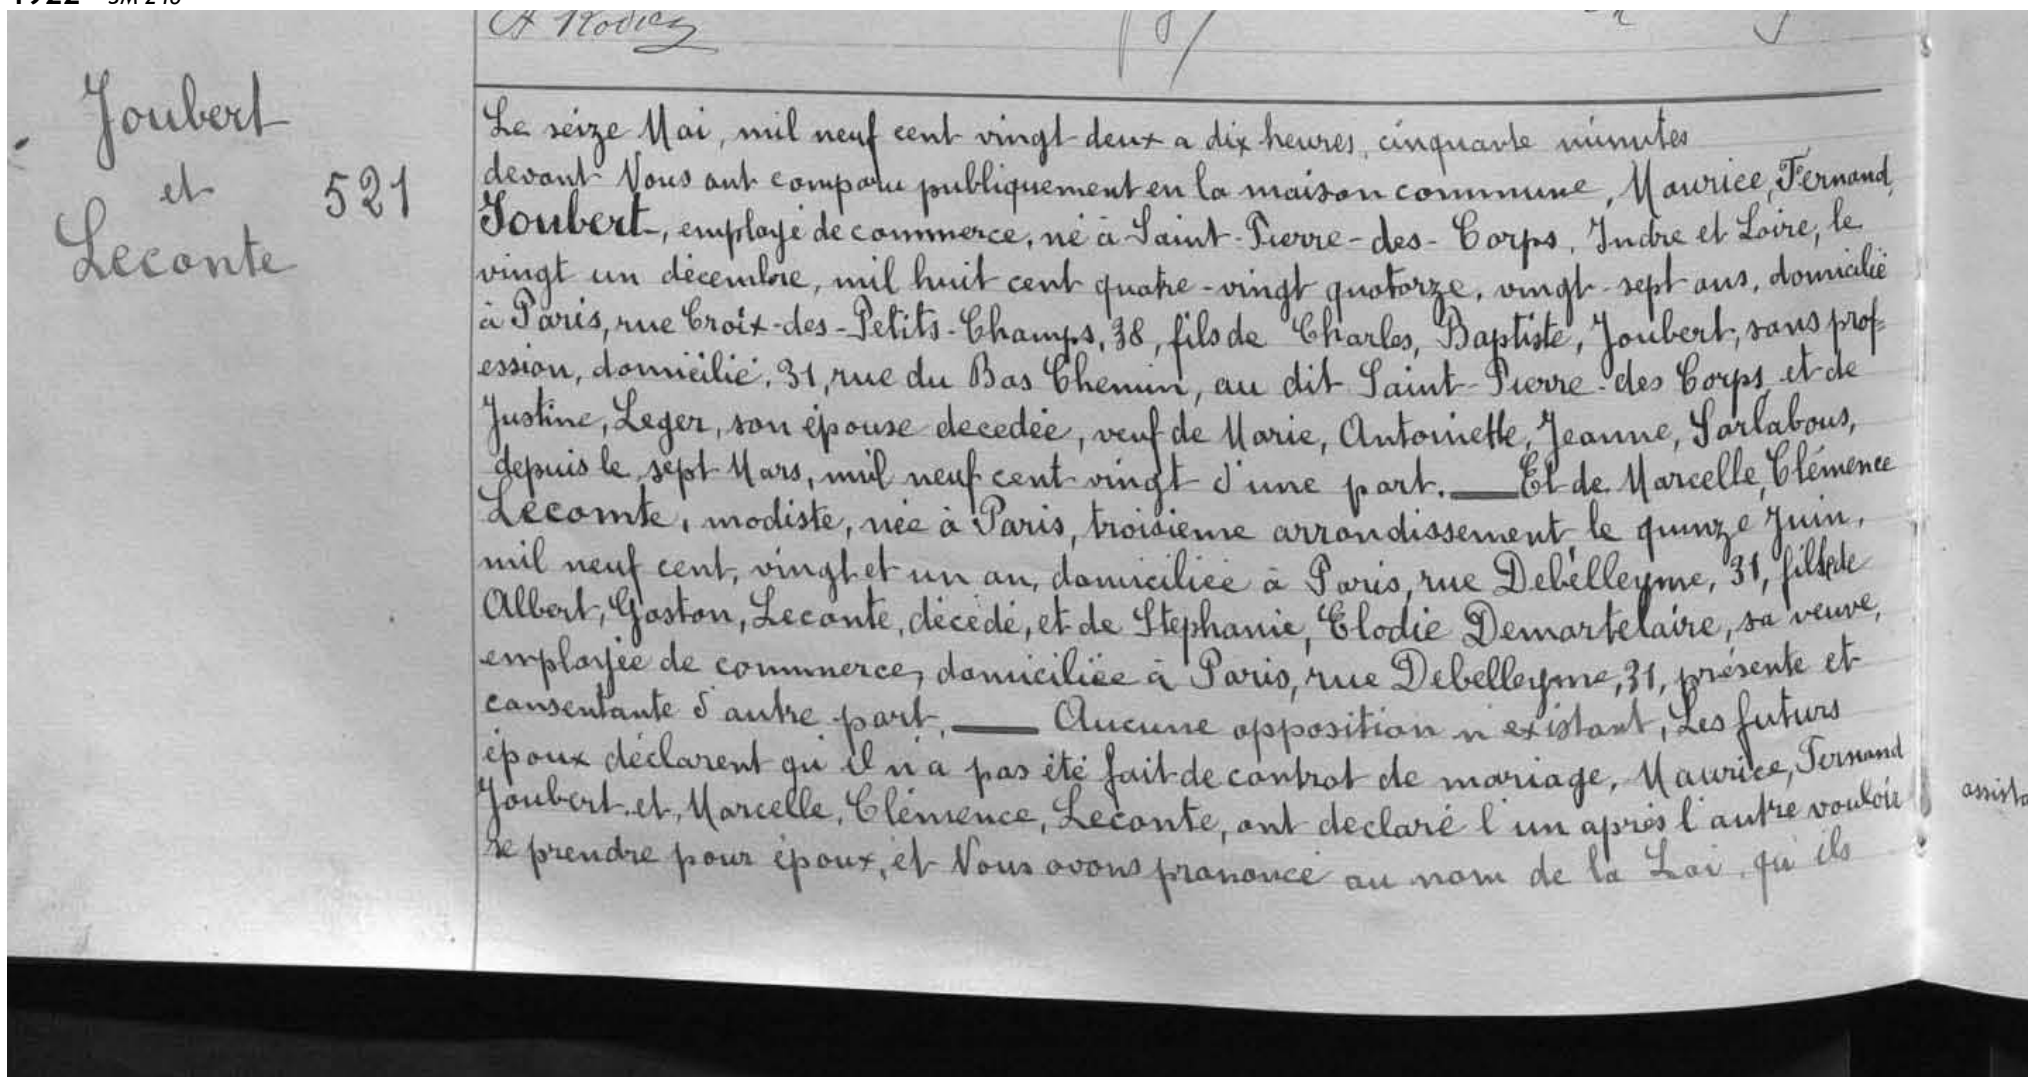 A Rodier
Joubert
et 521
Leconte
Le seize Mai, mil neuf cent vingt deux a dix heures, cinquante minutes
devant Nous ont comparu publiquement en la maison commune, Maurice, Fernand,
Joubert, employé de commerce, né à Saint-Pierre-des-Corps, Indre et Loire, le
vingt un décembre, mil huit cent quatre-vingt quatorze, vingt-sept ans, domicilié
à Paris, rue Croix-des-Petits-Champs, 38, fils de Charles, Baptiste, Joubert, sans prof-
ession, domicilié, 31, rue du Bas Chemin, au dit Saint-Pierre-des Corps, et de
Justine, Leger, son épouse decedée, veuf de Marie, Antoinette, Jeanne, Sarlabous,
depuis le sept Mars, mil neuf cent vingt d'une part. — Et de Marcelle, Clémence
Lecomte, modiste, née à Paris, troisieme arrondissement le quinze Juin,
mil neuf cent, vingt et un an, domiciliée à Paris, rue Debelleyme, 31, fille de
Albert, Gaston, Leconte, décédé, et de Stephanie, Elodie Demartelaire, sa veuve,
employée de commerce, domiciliée à Paris, rue Debelleyme, 31, présente et
consentante d'autre part. — Aucune opposition n'existant, Les futurs
époux déclarent qu'il n'a pas été fait de contrat de mariage, Maurice, Fernand
Joubert et, Marcelle, Clémence, Leconte, ont declaré l'un après l'autre vouloir
se prendre pour époux, et Nous avons prononcé au nom de la Loi, qu'ils